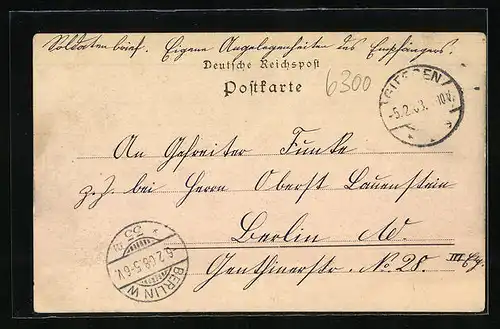 Soldatenbrief. Eigene Angelegenheiten des Empfängers.
Deutsche Reichspost
Postkarte
6300
GIESSEN
-5.2.03. 10V.
An Gefreiter Funke
z. Z. bei Herrn Oberst Lauenstein
Berlin W.
Genthinerstr. No 28. III
BERLIN W
35